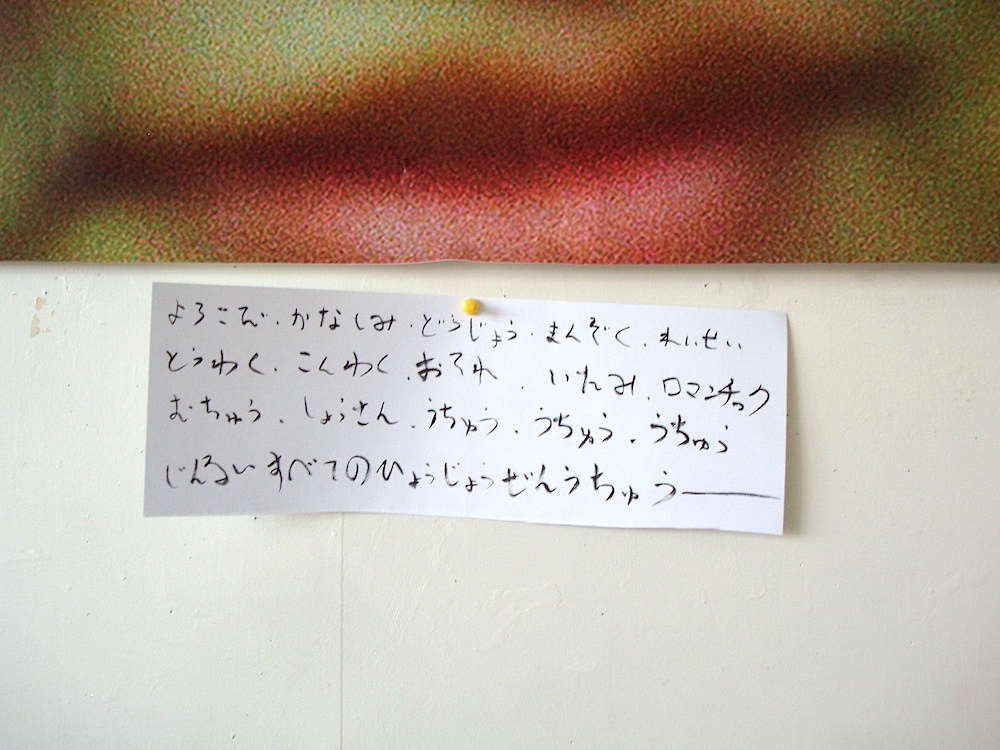 よろこび・かなしみ・どうじょう・まんぞく・れいせい
とうわく・こんわく・おそれ・いたみ・ロマンチック
むちゅう・しょうさん・うちゅう・うちゅう・うちゅう
じんるいすべてのひょうじょうぜんうちゅうー